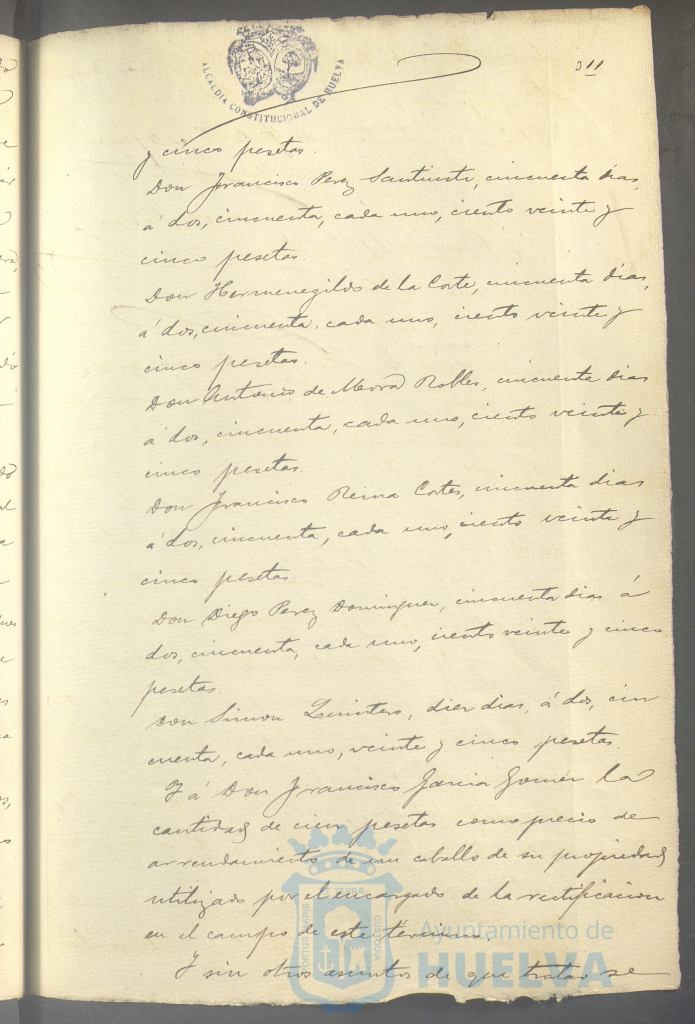 ALCALDIA CONSTITUCIONAL DE HUELVA
311
y cinco pesetas.
Don Francisco Perez Santiuste, cincuenta dias,
á dos, cincuenta, cada uno, ciento veinte y
cinco pesetas
Don Hermenegildo de la Corte, cincuenta dias,
á dos, cincuenta, cada uno, ciento veinte y
cinco pesetas.
Don Antonio de Mora Robles, cincuenta dias
á dos, cincuenta, cada uno, ciento veinte y
cinco pesetas.
Don Francisco Reina Cortes, cincuenta dias
á dos, cincuenta, cada uno, ciento veinte y
cinco pesetas.
Don Diego Perez Dominguez, cincuenta dias á
dos, cincuenta, cada uno, ciento veinte y cinco
pesetas.
Don Simon Quintero, diez dias, á dos, cin
cuenta, cada uno, veinte y cinco pesetas.
Y á Don Francisco Garcia Gomez la
cantidad de cien pesetas como precio de
arrendamiento de un caballo de su propiedad
utilizado por el encargado de la rectificacion
en el campo de este término.
Y sin otros asuntos de que tratar se
PORTUS MARIS ET TERRÆ CUSTODIA
Ayuntamiento de
HUELVA